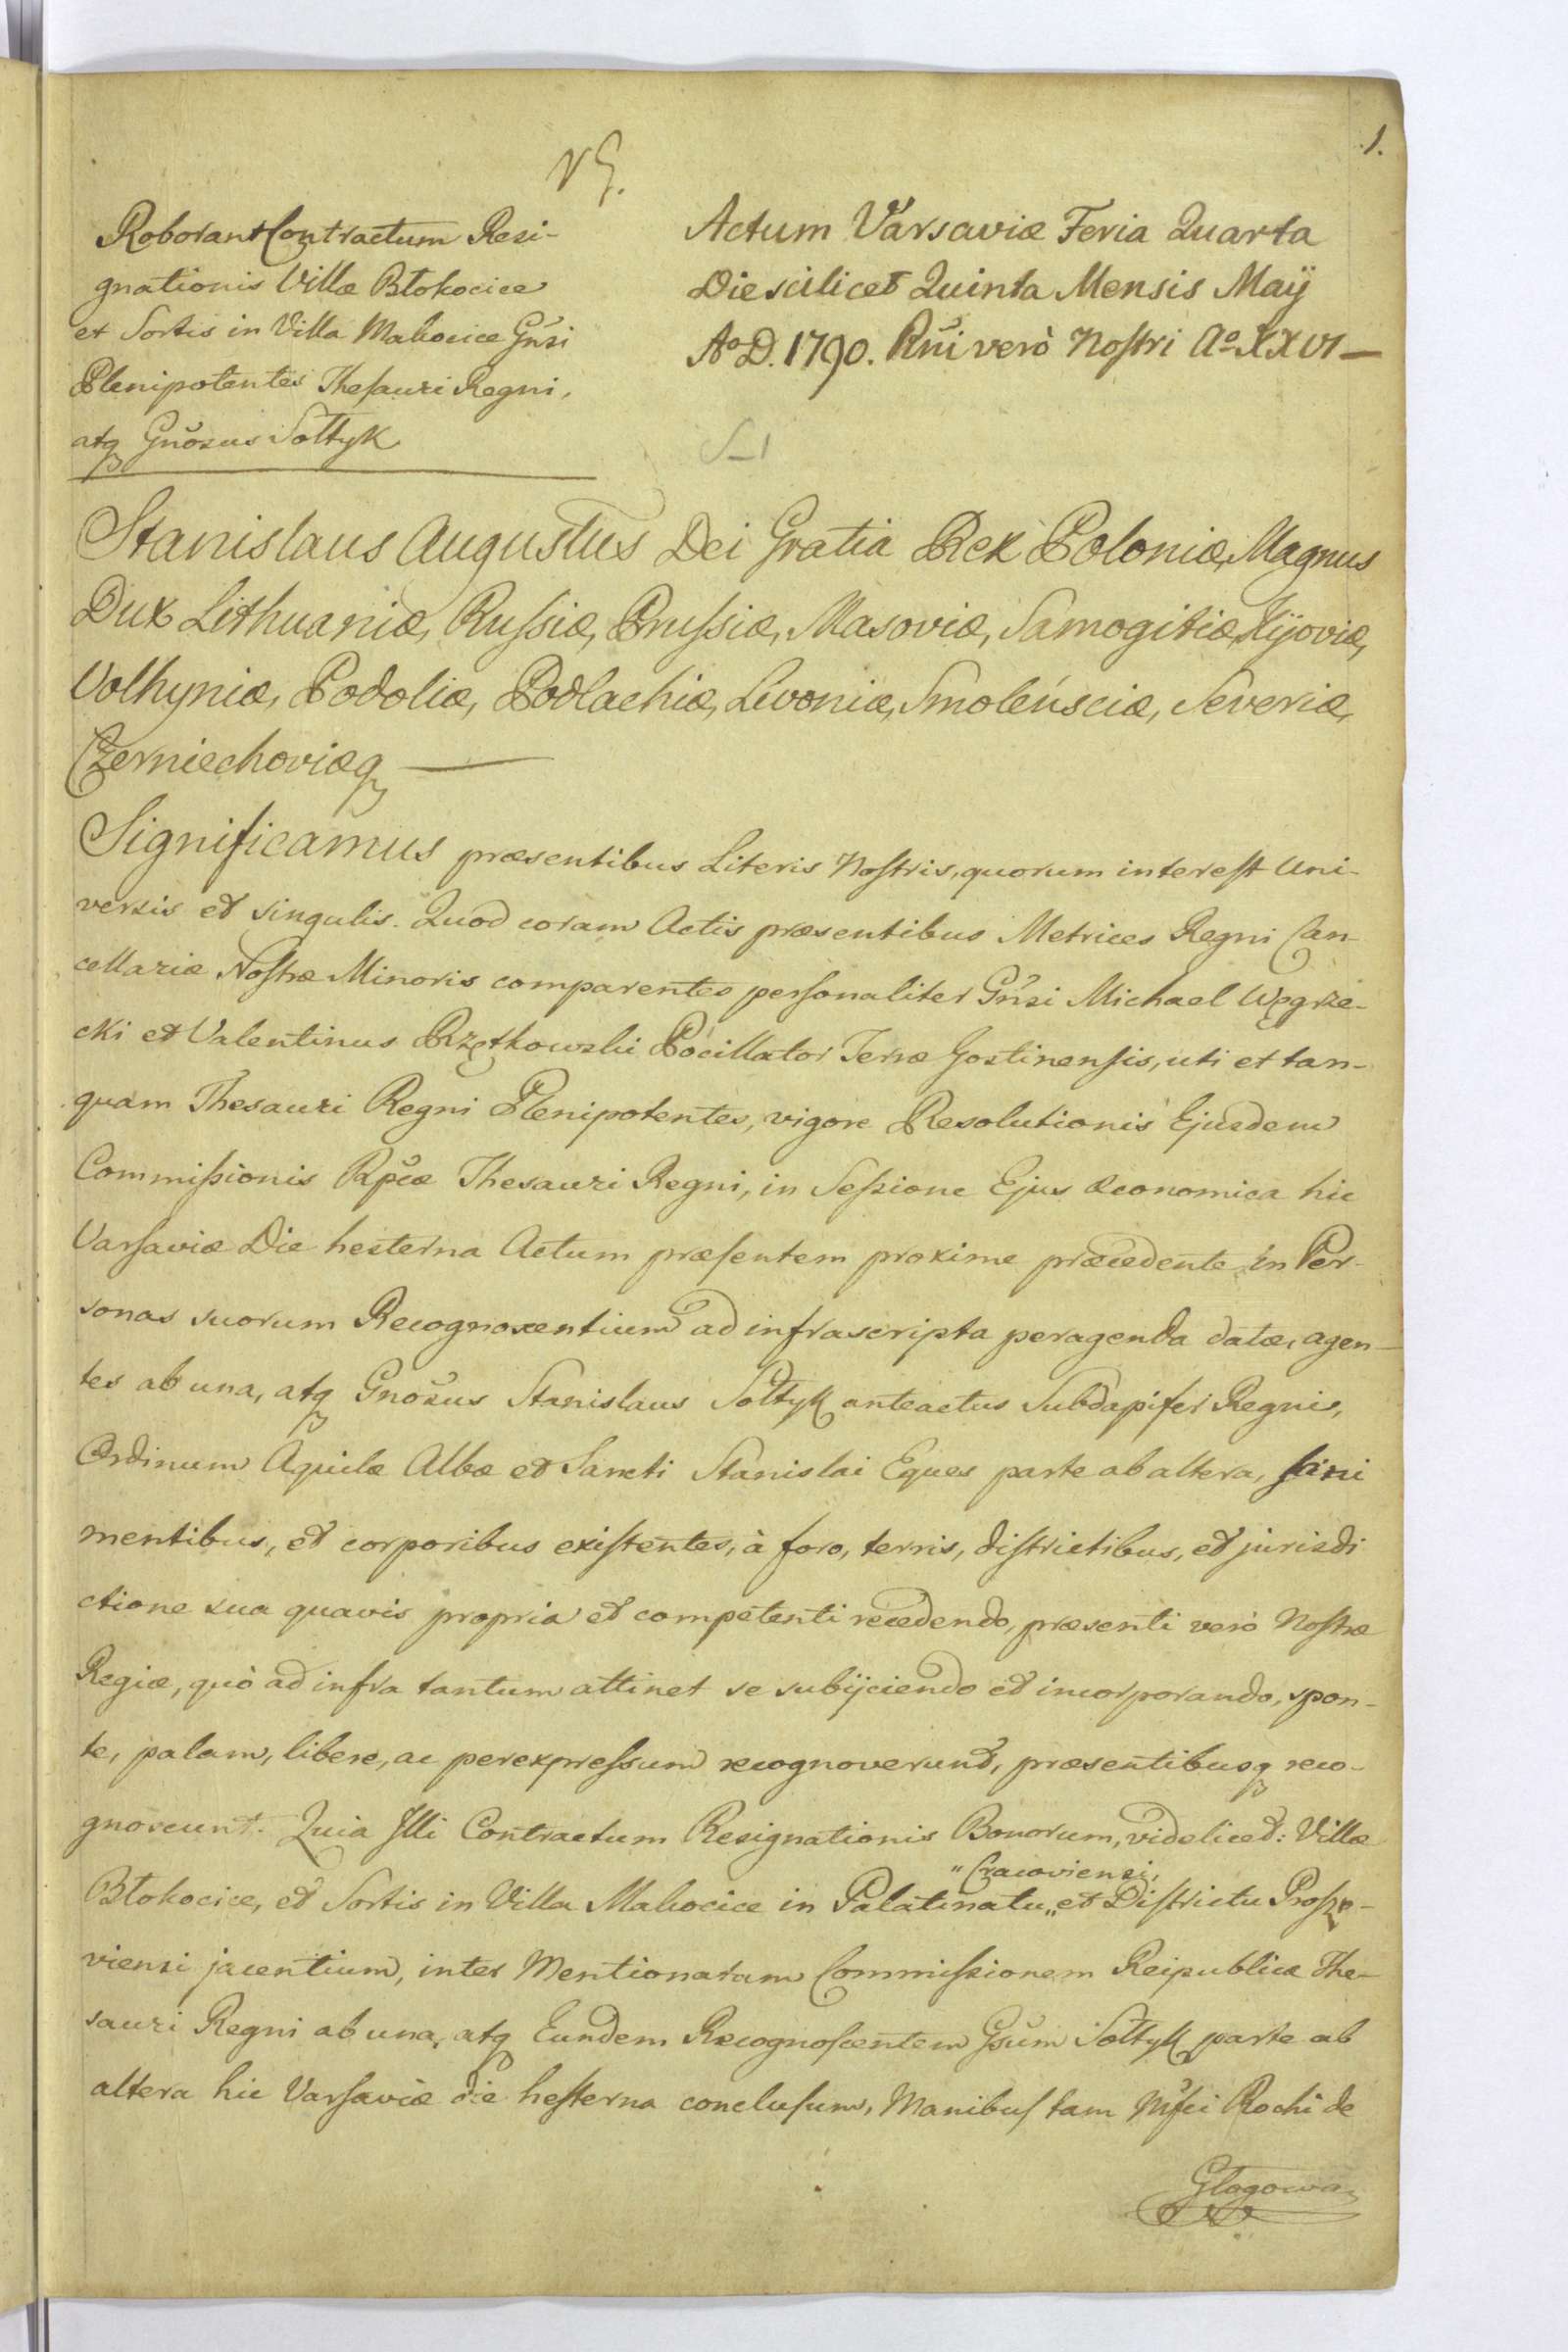 1.
VS.
Roborant Contractum Resi-
gnationis Villæ Błokocice
et Sortis in Villa Makocice Gn̄si
Plenipotentes Thesauri Regni,
atq Gnōsus Sołtyk
Actum Varsaviæ Feria Quarta
Die scilicet Quinta Mensis Maÿ
Aº D. 1790. Rn̄i verò Nostri Aº XXVI —
S—1
Stanislaus Augustus Dei Gratia Rex Poloniæ, Magnus
Dux Lithuaniæ, Russiæ, Prussiæ, Masoviæ, Samogitiæ, Kijoviæ,
Volhyniæ, Podoliæ, Podlachiæ, Livoniæ, Smoleńsciæ, Severiæ,
Czerniechoviæq —
Significamus præsentibus Literis Nostris, quorum interest Uni-
versis et singulis. Quod coram Actis præsentibus Metrices Regni Can-
cellariæ Nostræ Minoris comparentes personaliter Gn̄si Michael Węgrze-
cki et Valentinus Rzętkowski Pocillator Terræ Gostinensis, uti et tan-
quam Thesauri Regni Plenipotentes, vigore Resolutionis Ejusdem
Commissionis Rp̄cæ Thesauri Regni, in Sessione Ejus Œconomica hic
Varsaviæ Die hesterna Actum præsentem proxime præcedente in Per-
sonas suorum Recognoscentium ad infrascripta peragenda datæ, agen-
tes ab una, atq Gnōsus Stanislaus Sołtyk anteactus Subdapifer Regnis,
Ordinum Aquilæ Albæ et Sancti Stanislai Eques parte ab altera, sani
mentibus, et corporibus existentes, à foro, terris, districtibus, et jurisdi
ctione sua quavis propria et competenti recedendo, præsenti verò Nostræ
Regiæ, quò ad infra tantum attinet se subijciendo et incorporando, spon-
te, palam, libere, ac per expressum recognoverunt, præsentibusq reco-
gnoscunt. Quia Illi Contractum Resignationis Bonorum, videlicet: Villæ
"Cracoviensi,
Błokocice, et Sortis in Villa Makocice in Palatinatu„ et Districtu Proszo-
viensi jacentium, inter Mentionatam Commissionem Reipublicæ The-
sauri Regni ab una, atq Eundem Recognoscentem Gsūm Sołtyk parte ab
altera hic Varsaviæ die hesterna conclusum, Manibus tam Mf̄ci Rochi de
Głogowa